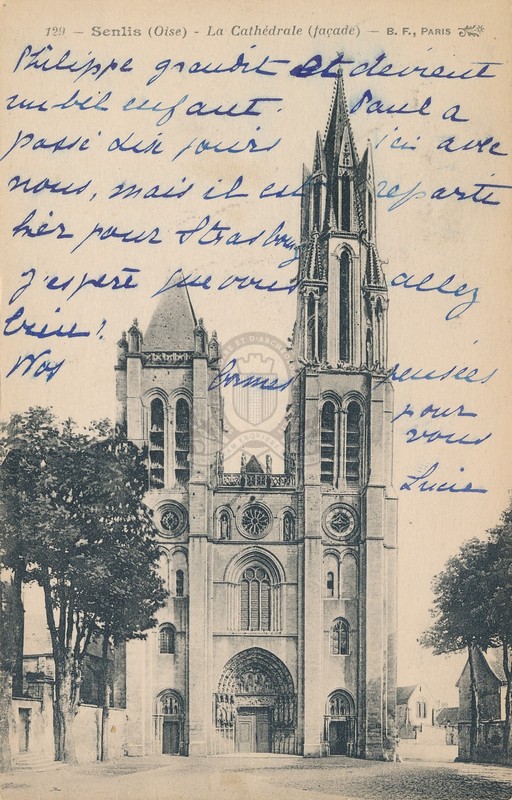 129 - Senlis (Oise) - La Cathédrale (façade) - B. F., PARIS
Philippe grandit et devient
un bel enfant. Paul a
passé dix jours ici avec
nous, mais il est reparti
hier pour Strasbourg
j'espère que vous allez
bien?
Nos bonnes pensées
pour
vous
Lucie